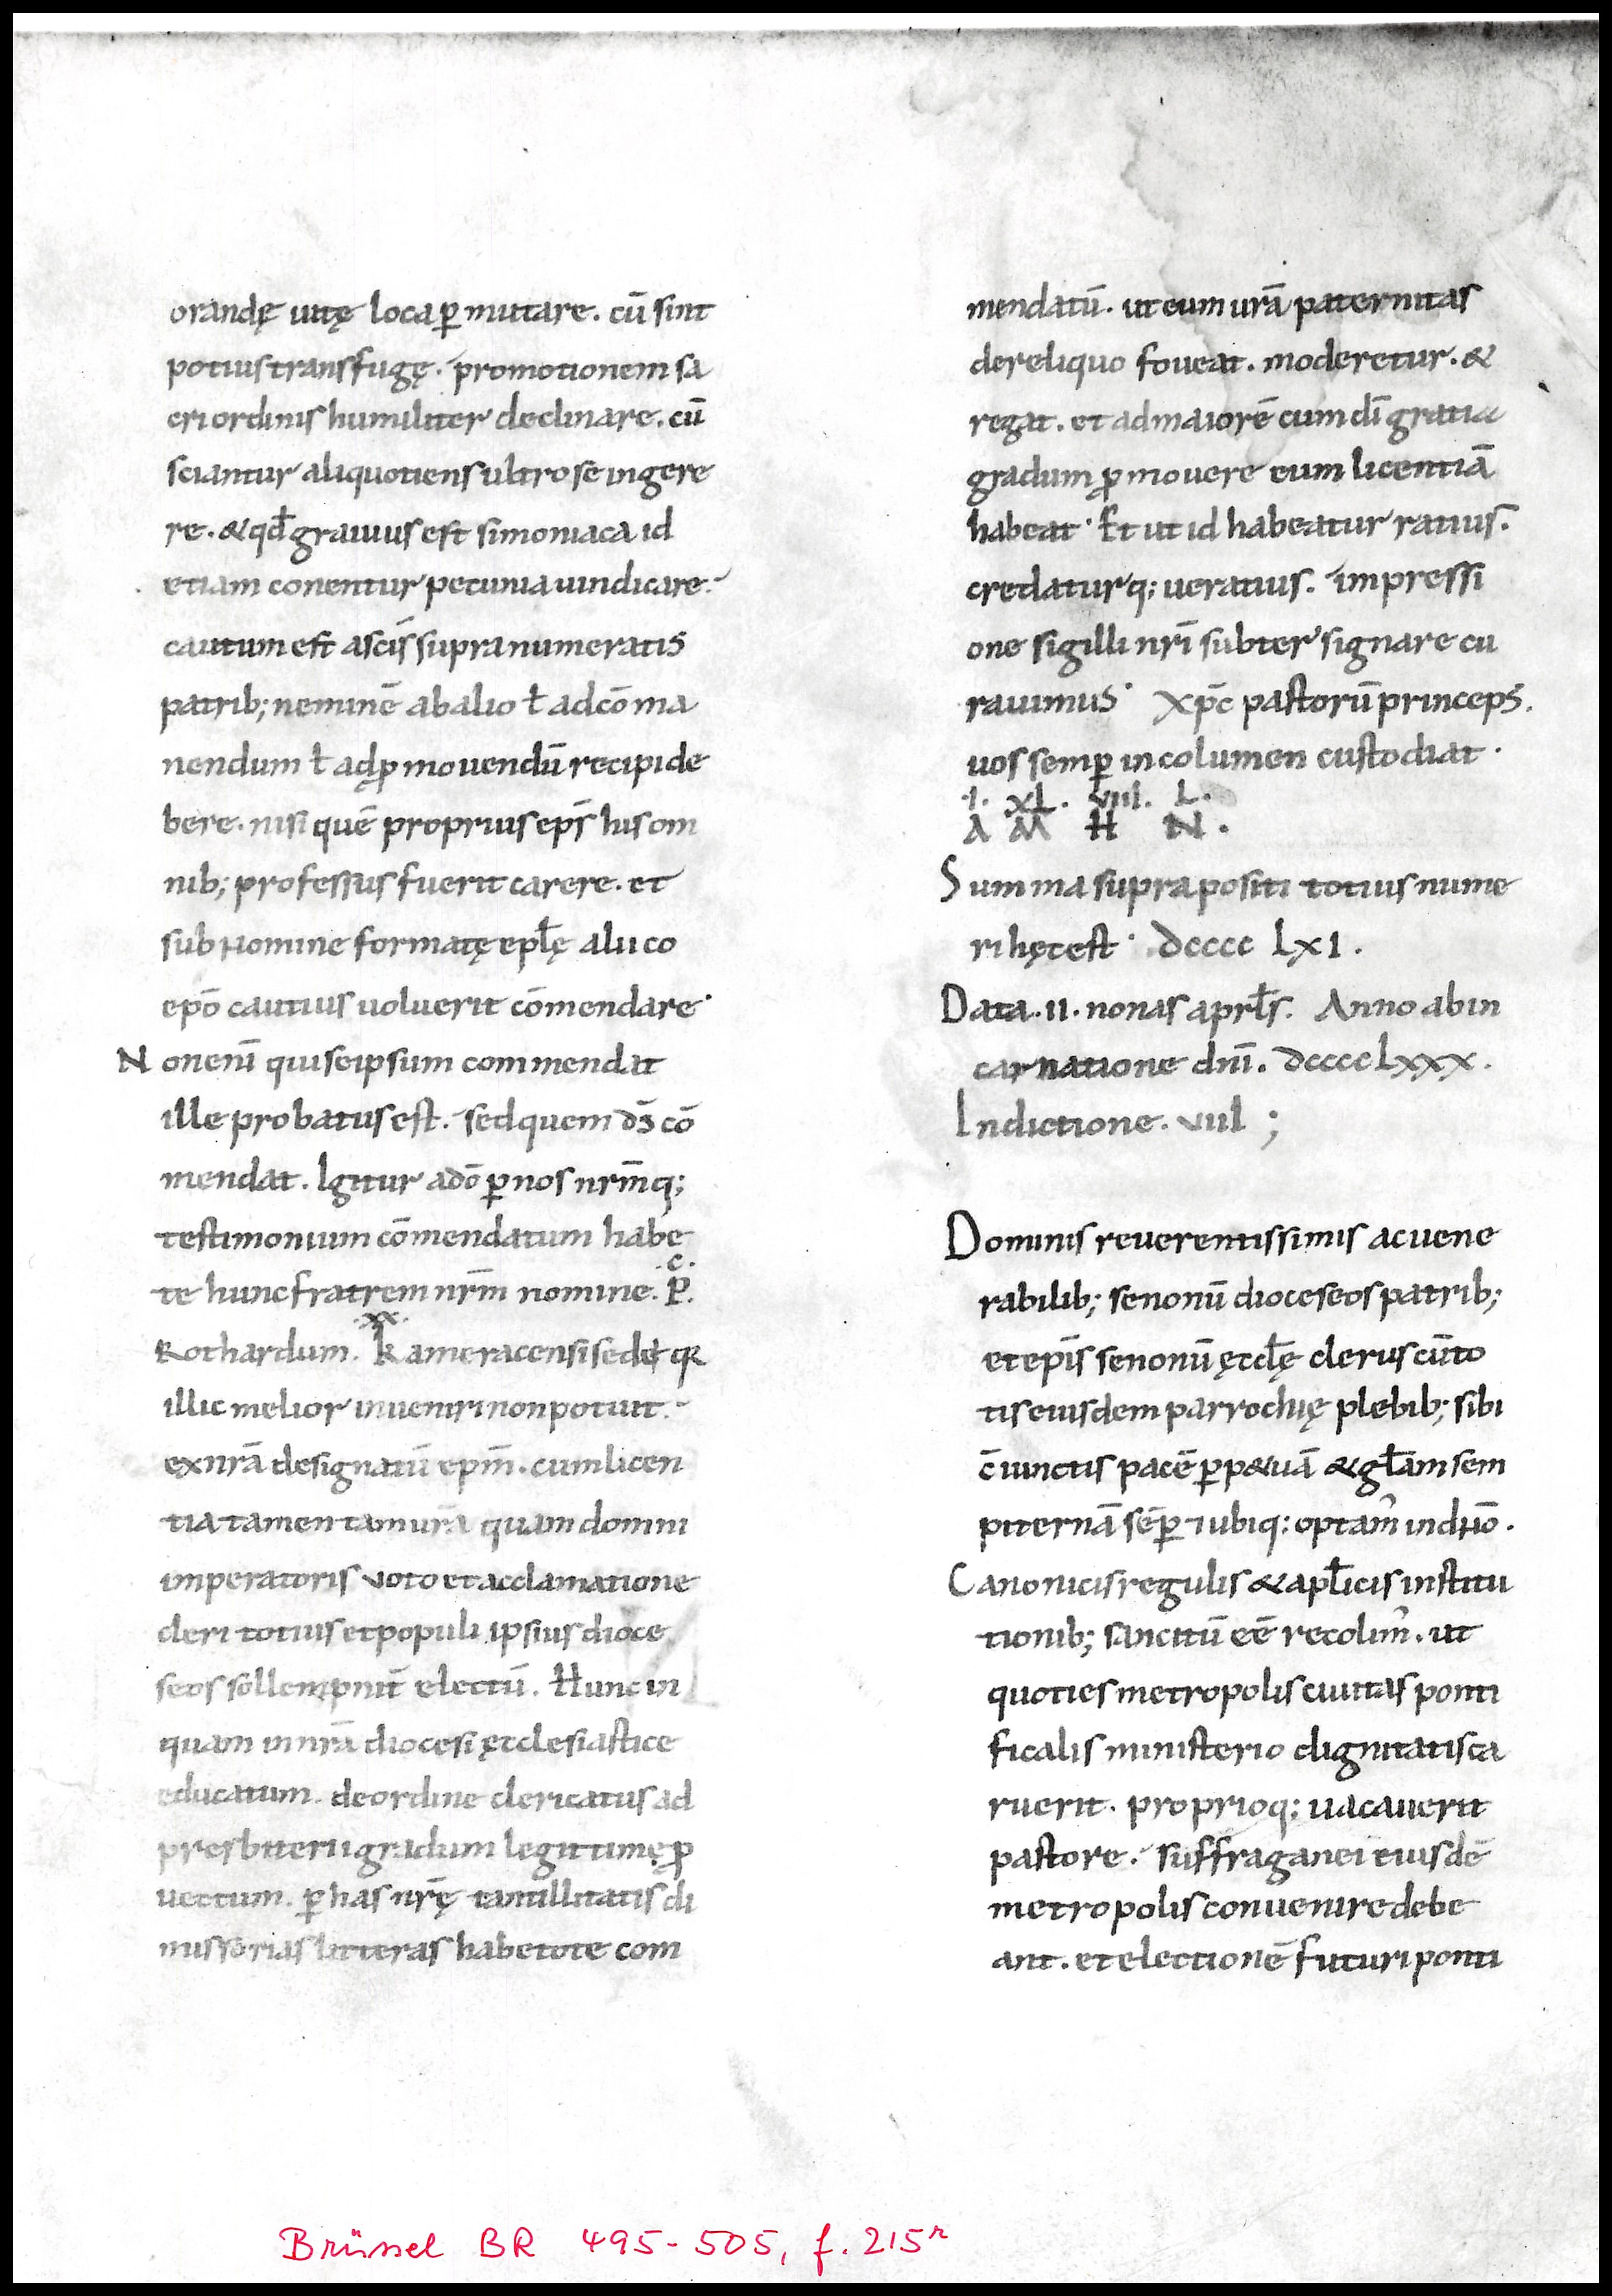 orandę uitę loca ꝑmutare. cū sint
potius transfugę. promotionem sa
cri ordinis humiliter declinare. cū
sciantur aliquotiens ultro sē ingere
re. & qđ grauius est simoniaca id
etiam conentur pecunia uindicare.
cautum est a scīs supra numeratis
patrib; neminē ab alio ł ad cōma
nendum ł ad ꝓmouendū recipi de
bere. nisi quē proprius eps̄ his om
nib; professus fuerit carere. et
sub nomine formatę epłę alii co
epō cautius uoluerit cōmendare.
Non enī qui seipsum commendat
ille probatus est. sed quem ds̄ cō
mendat. Igitur a dō ꝑ nos nrm̄q;
testimonium cōmendatum habe
te hunc fratrem nrm̄ nomine. P.
c.
Rothardum. Kameracensi sede qꝛ
xx.
illic melior inueniri non potuit.
ex nrā designatū epm̄. cum licen
tia tamen tam urā quam domni
imperatoris uoto et acclamatione
cleri totius et populi ipsius dioce
seos sollempnit̄ electū. Hunc in
quam in nrā diocesi ęcclesiastice
educatum. de ordine clericatus ad
presbiterii gradum legitimę ꝓ
uectum. ꝑ has nrę̄ tantillitatis di
missorias litteras habetote com
mendatū. ut eum urā paternitas
de reliquo foueat. moderetur. &
regat. et ad maiorē cum dī gratia
gradum ꝓmouere eum licentiā
habeat. Et ut id habeatur ratius.
credaturq; ueratius. impressi
one sigilli nrī subter signare cu
rauimus. Xpc̄ pastorū princeps.
uos semꝑ incolumen custodiat.
.I. XL. VIII. L.
A M H N.
Summa suprapositi totius nume
ri hęc est. DCCCC LXI.
Data. II. nonas aprłs. Anno ab in
carnatione dnī. DCCCCLXXX.
Indictione. VIII;
Dominis reuerentissimis ac uene
rabilib; senonū dioceseos patrib;
et epīs senonū ęccłę clerus cūcto
tis eiusdem parrochię plebib; sibi
c̄iunctis pacē ꝑp&uā & głam sem
piternā sēꝑ ⁊ ubiq; optam̉ in dn̄o.
Canonicis regulis & apłicis institu
tionib; sancitū eē recolim̉. ut
quoties metropolis ciuitas ponti
ficalis ministerio dignitatis ca
ruerit. proprioq; uacauerit
pastore. suffraganei eiusdē
metropolis conuenire debe
ant. et electionē futuri ponti
Brüssel BR 495-505, f. 215ʳ